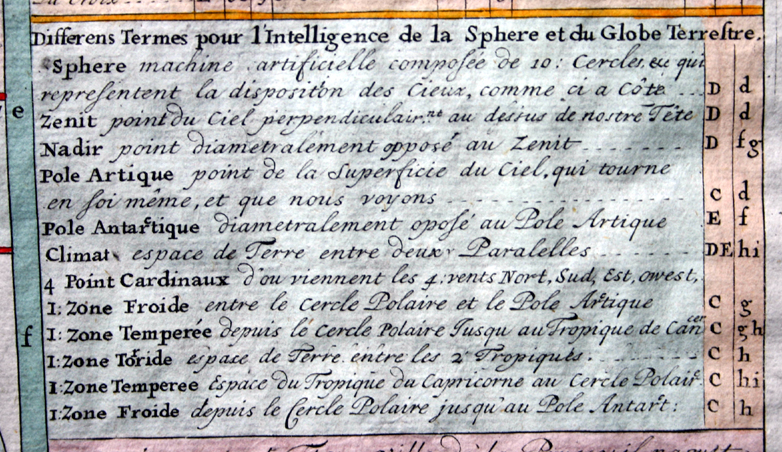 La Croix
Differens Termes pour l'Intelligence de la Sphere et du Globe Terrestre.
Sphere machine artificielle composée de 10: Cercles, qui
representent la dispositon des Cieux, comme ci a Côte ... D d
Zenit point du Ciel perpendiculair.nt au dessus de nostre Tête D d
Nadir point diametralement opposé au Zenit D fg
Pole Artique point de la Superficie du Ciel, qui tourne
en soi même, et que nous voyons C d
Pole Antarctique diametralement oposé au Pole Artique E f
Climat espace de Terre entre deux Paralelles DE hi
4 Point Cardinaux d'ou viennent les 4: vents Nort, Sud, Est, owest,
1: Zone Froide entre le Cercle Polaire et le Pole Artique C g
1: Zone Temperee depuis le Cercle Polaire Jusqu au Tropique de Cancer C gh
1: Zone Toride espace de Terre entre les 2 Tropiques. C h
1: Zone Temperee Espace du Tropique du Capricorne au Cercle Polair C hi
1: Zone Froide depuis le Cercle Polaire jusqu'au Pole Antart: C h
e
f